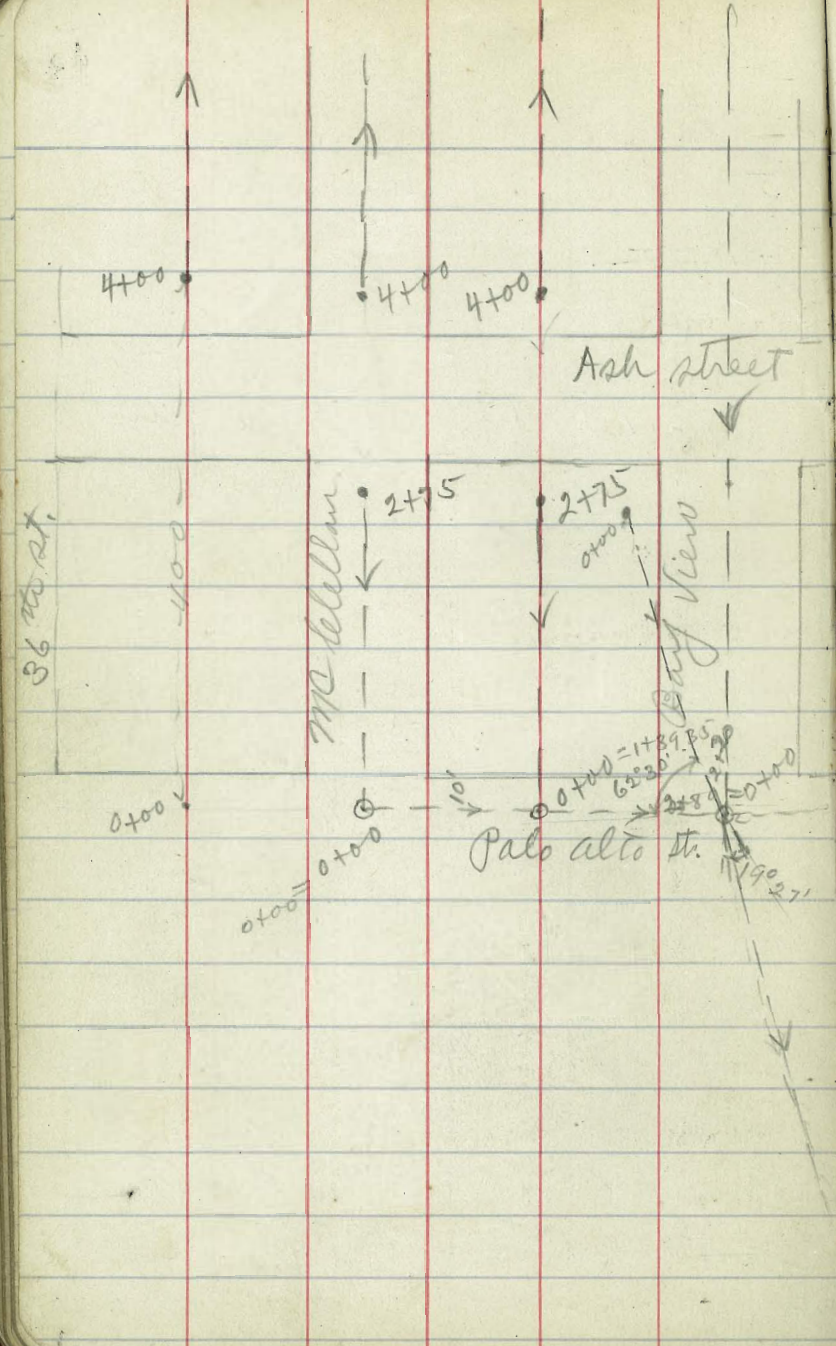 4+00
4+00
4+00
Ash street
36 th st.
400
McClellan
2+75
2+75
0+00
Bay View
0+00
0+00 = 0+00
10'
0+00 = 1+89.35
62°30'
= 0+00
Palo Alto St.
19° 27'